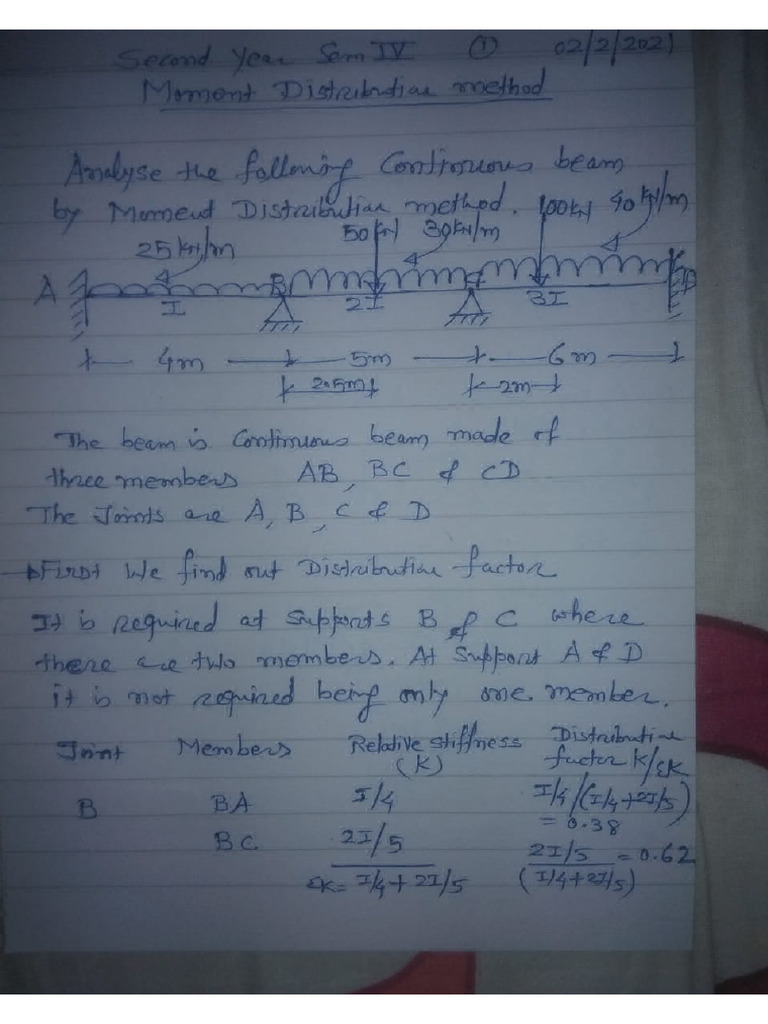 Second Year Sem IV ① 02/2/2021
Moment Distribution method
Analyse the following Continuous beam
by Moment Distribution method.
100kN 40kN/m
50kN 30kN/m
25kN/m
A B C D
I 2I 3I
4m 5m 6m
2.5m 2m
The beam is Continuous beam made of
three members AB, BC & CD
The Joints are A, B, C & D
→ First We find out Distribution factor
It is required at supports B & C where
there are two members. At Support A & D
it is not required being only one member.
Joint Members Relative stiffness (K) Distribution factor K/ΣK
B BA I/4 I/4/(I/4+2I/5)
= 0.38
BC 2I/5 2I/5/(I/4+2I/5) = 0.62
ΣK= I/4+2I/5